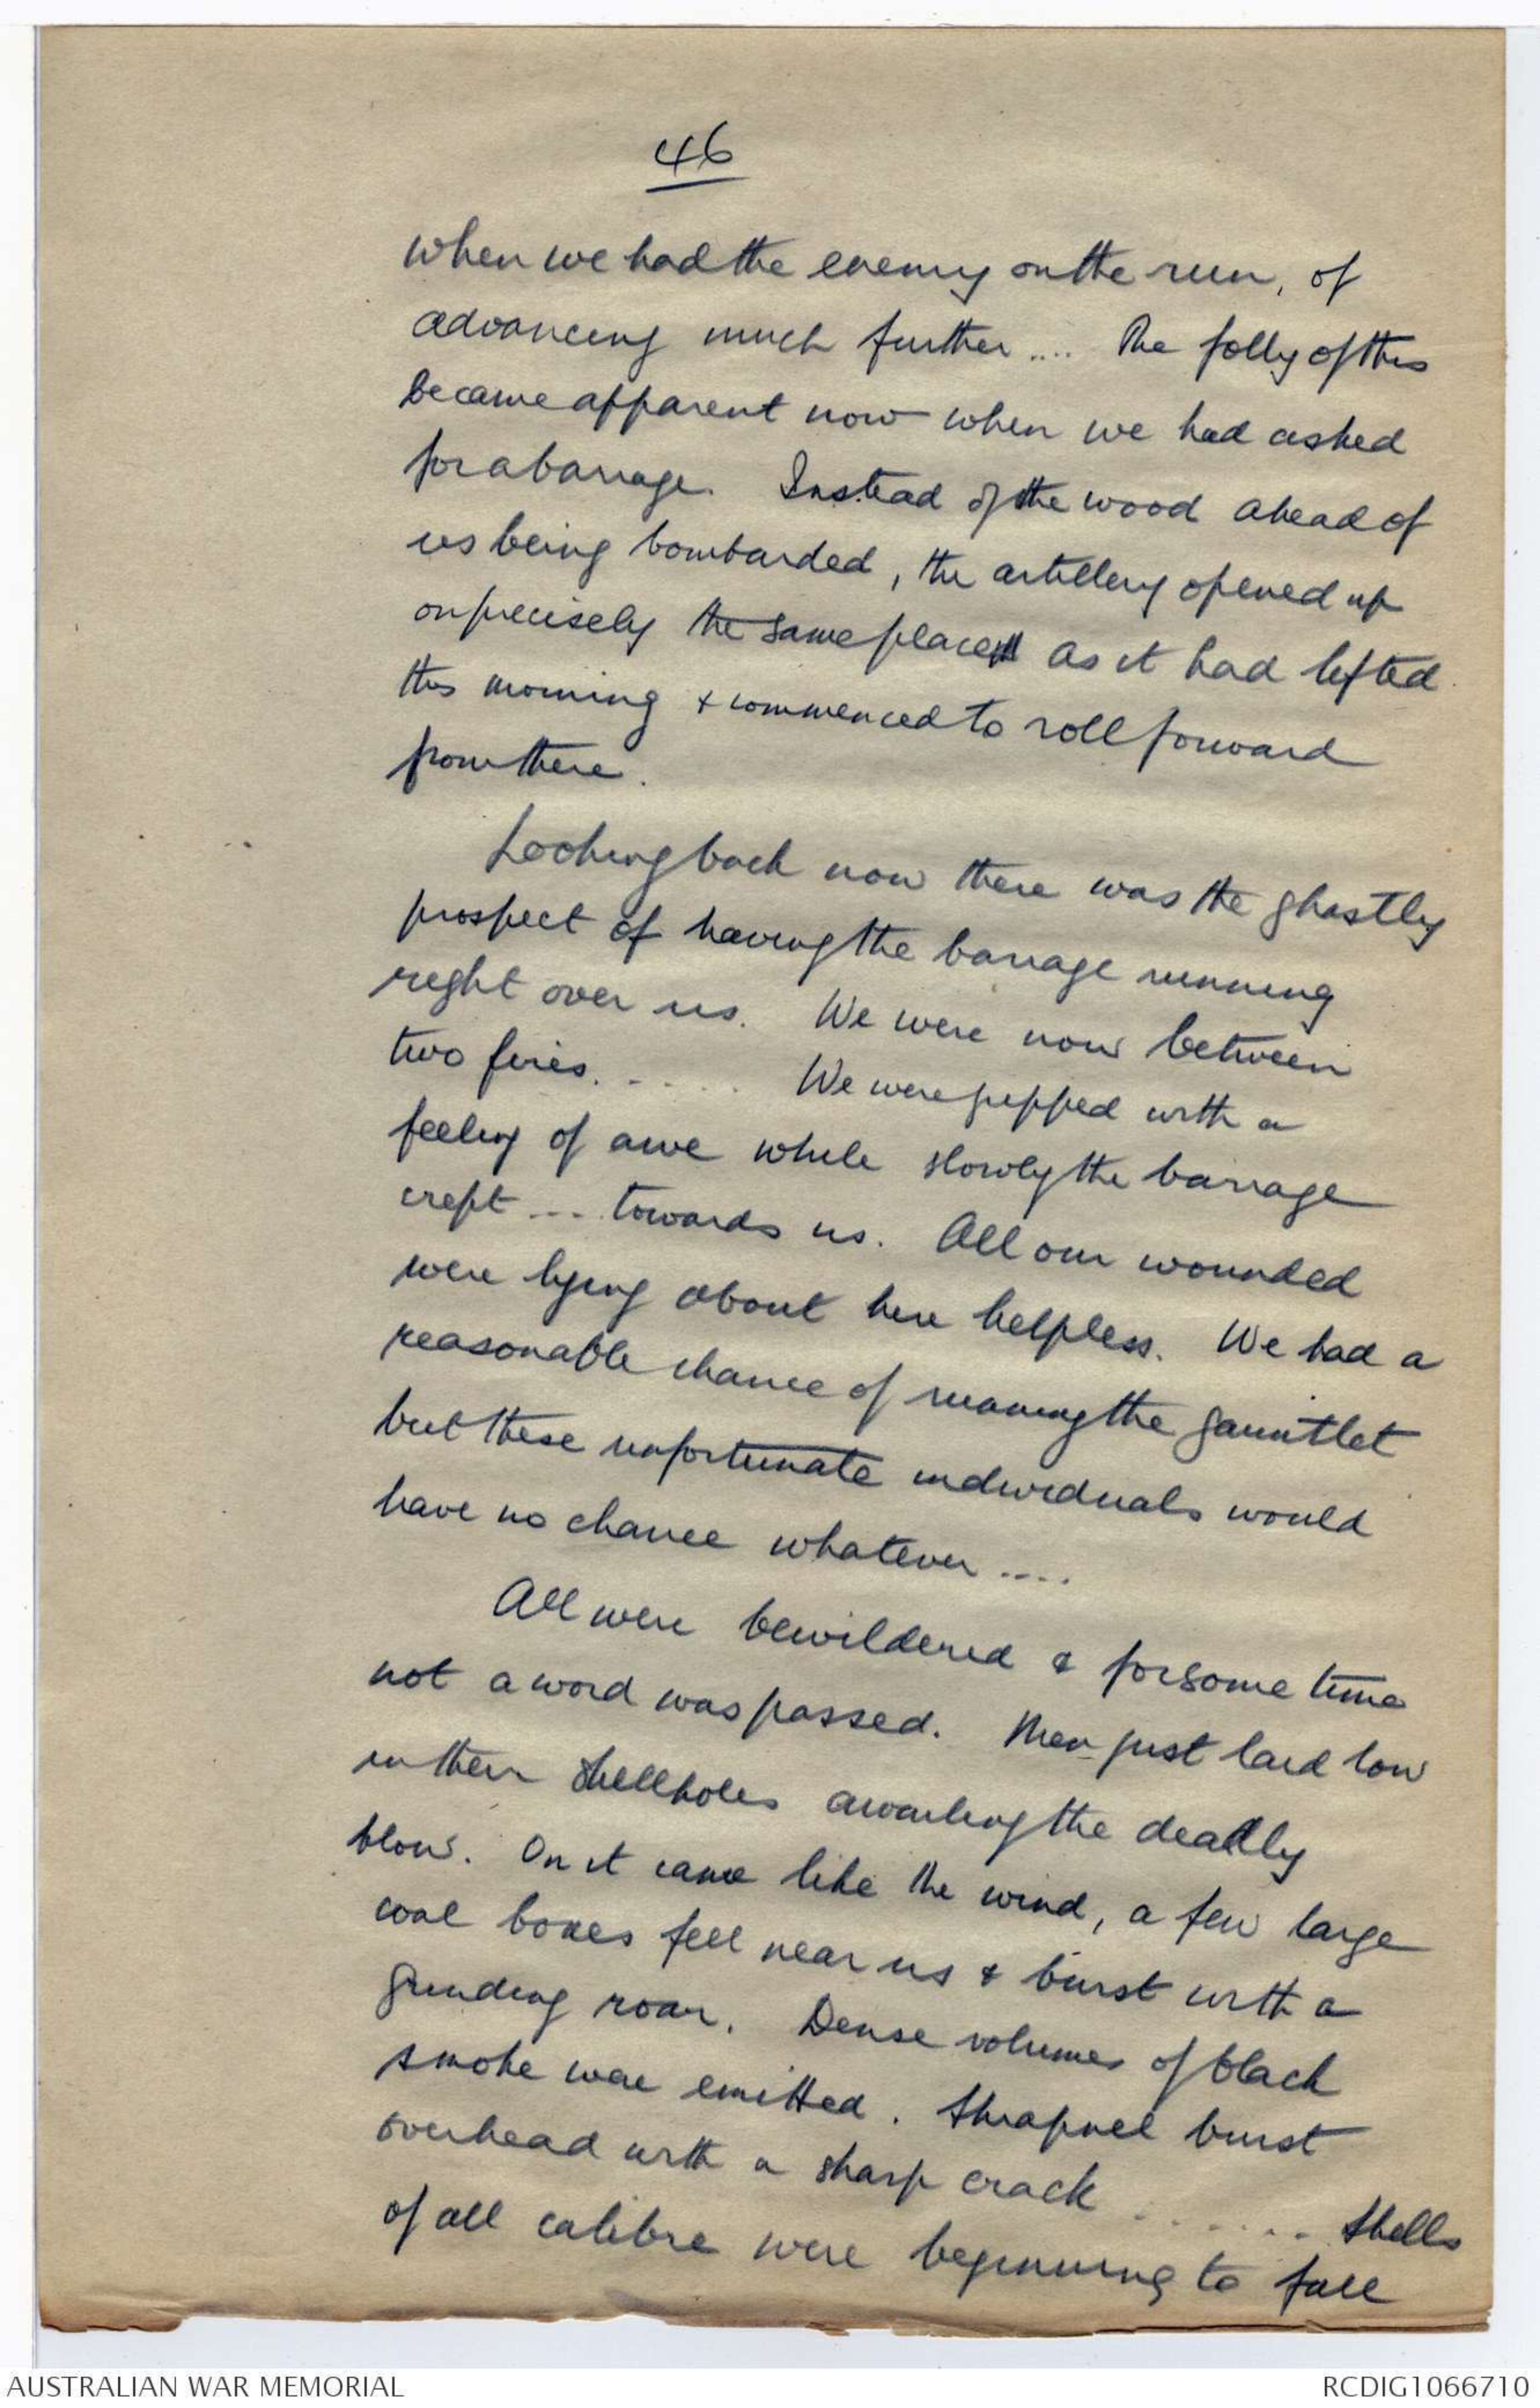 46
when we had the enemy on the run, of
advancing much further .... The folly of this
became apparent now when we had asked
for a barrage. Instead of the wood ahead of
us being bombarded, the artillery opened up
on precisely the same place as it had lifted
this morning & commenced to roll forward
from there.
Looking back now there was the ghastly
prospect of having the barrage running
right over us. We were now between
two fires. ..... We were with a
feeling of awe while slowly the barrage
crept ... towards us. All our wounded
were lying about here helpless. We had a
reasonable chance of running the gauntlet
but these unfortunate individuals would
have no chance whatever ....
All were bewildered & for some time
not a word was passed. Men just laid low
in their shellholes awaiting the deadly
blow. On it came like the wind, a few large
coal boxes fell near us & burst with a
grinding roar. Dense volumes of black
smoke were emitted. Shrapnel burst
overhead with a sharp crack ....... Shells
of all calibre were beginning to fall
AUSTRALIAN WAR MEMORIAL
RCDIG1066710